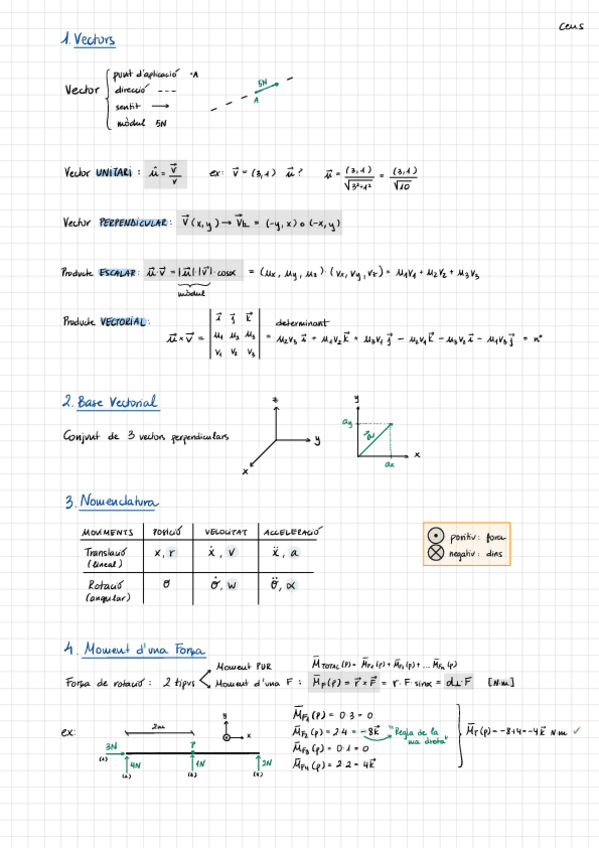 ceus
1. Vectors
Vector
punt d'aplicació ·A
direcció ---
sentit →
mòdul 5N
5N
A
Vector UNITARI: û = v⃗/v ex: v⃗ = (3,1) u⃗? u⃗ = (3,1)/√3²+1² = (3,1)/√10
Vector PERPENDICULAR: V⃗(x,y) → V⃗⊥ = (-y,x) o (-x,y)
Producte ESCALAR: u⃗·v⃗ = |u⃗|·|v⃗|·cosα = (ux, uy, uz)·(vx, vy, vz) = u1v1 + u2v2 + u3v3
mòdul
Producte VECTORIAL:
determinant
u⃗×v⃗ = | i⃗ j⃗ k⃗ | = u2v3 i⃗ + u1v2 k⃗ + u3v1 j⃗ - u2v1 k⃗ - u3v2 i⃗ - u1v3 j⃗ = nº
u1 u2 u3
v1 v2 v3
2. Base Vectorial
Conjunt de 3 vectors perpendiculars
z
y
x
y
ay
ax
x
3. Nomenclatura
MOVIMENTS POSICIÓ VELOCITAT ACCELERACIÓ
Translació (lineal) x, r ẋ, v ẍ, a
Rotació (angular) θ θ̇, w θ̈, α
positiu: fora
negatiu: dins
4. Moment d'una Força
Força de rotació: 2 tipus
Moment PUR M̄TOTAL(P) = M̄F1(P) + M̄F2(P) + ... M̄Fn(P)
Moment d'una F: M̄F(P) = r̄ × F̄ = r·F·sinα = d⊥·F [N·m]
ex:
2m
3N
4N
P
1N
2N
y
x
M̄F1(P) = 0·3 = 0
M̄F2(P) = 2·4 = -8k⃗ "Regla de la mà dreta"
M̄F3(P) = 0·1 = 0
M̄F4(P) = 2·2 = 4k⃗
M̄T(P) = -8+4 = -4k⃗ N·m ✓